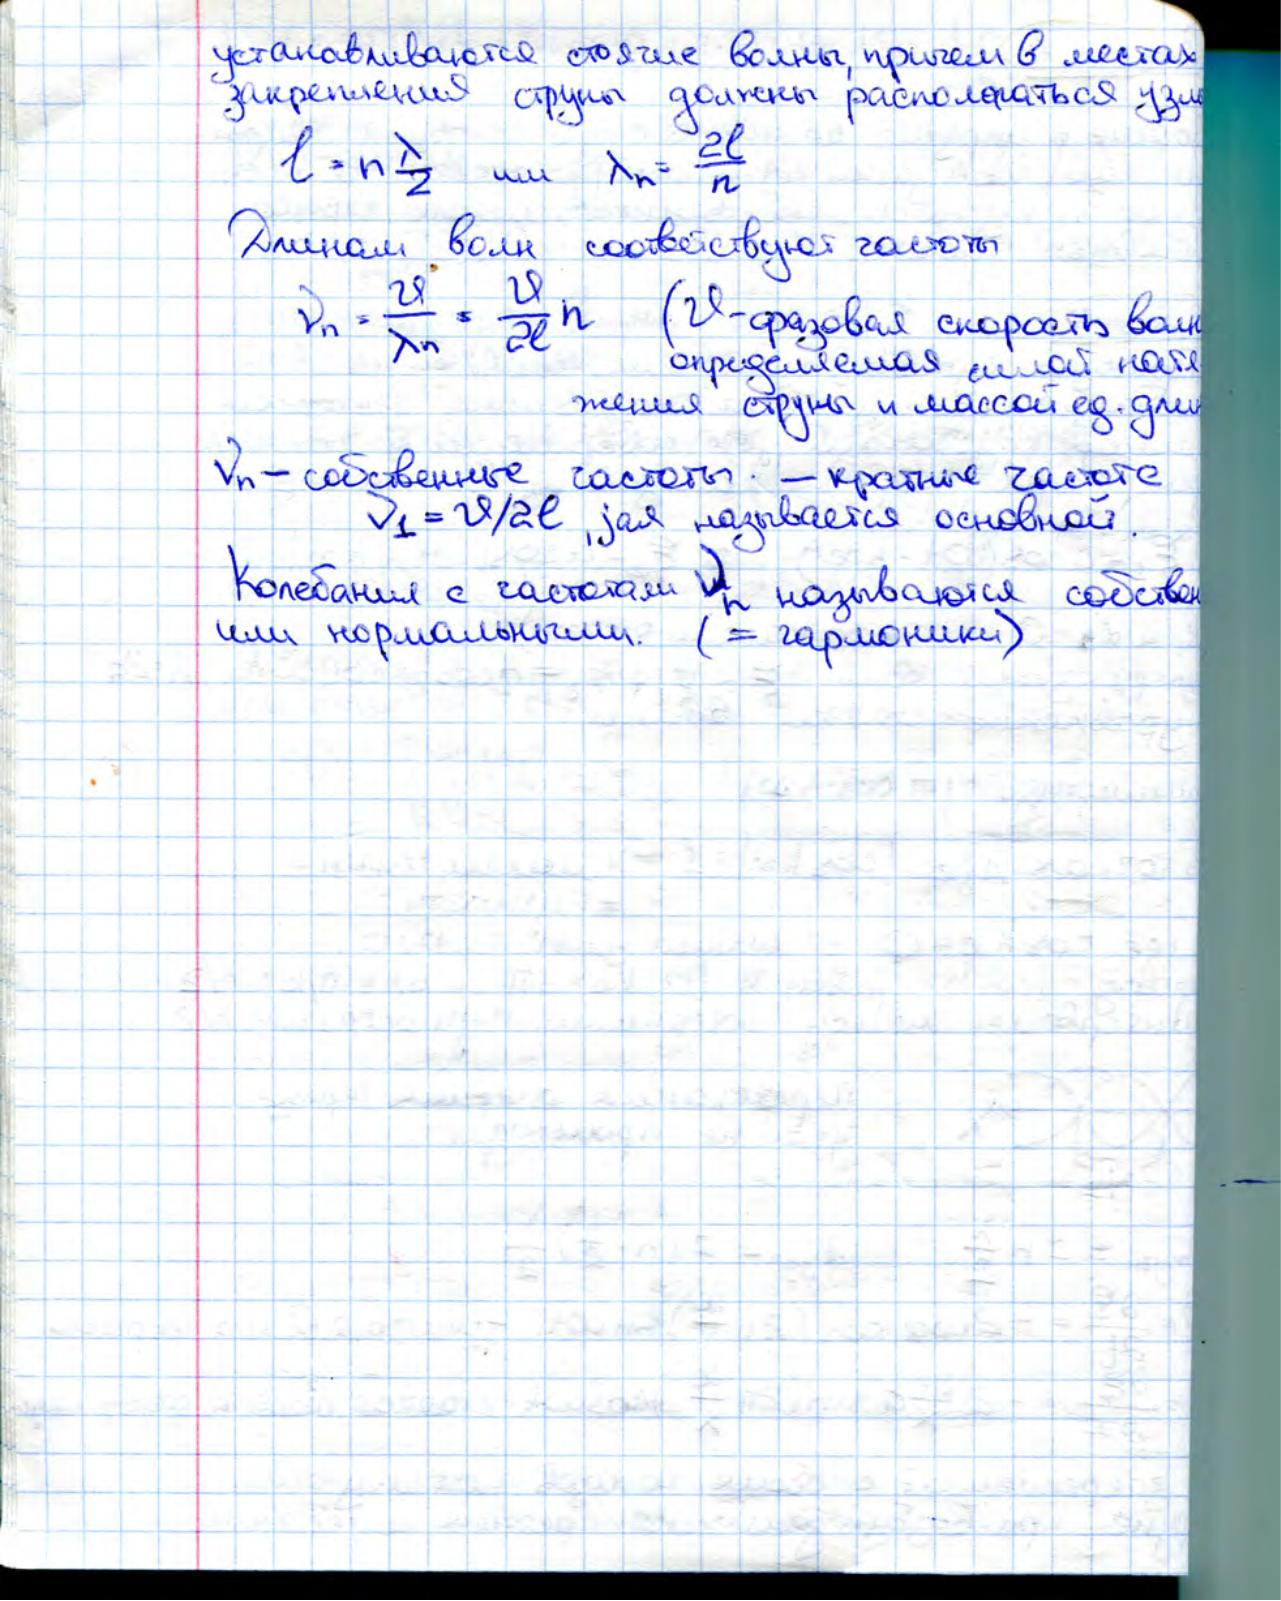 устанавливаются стоячие волны, причем в местах
закрепления струны должны располагаться узл
l = n λ/2 или λₙ = 2l/n
Длинам волн соответствуют частоты
νₙ = υ/λₙ = υ/2l n (υ - фазовая скорость волн
определяемая силой натя
жения струны и массой ед. длин
νₙ — собственные частоты. — кратные частоте
ν₁ = υ/2l, jая называется основной.
Колебания с частотами νₙ называются собствен
или нормальными. (= гармоники)